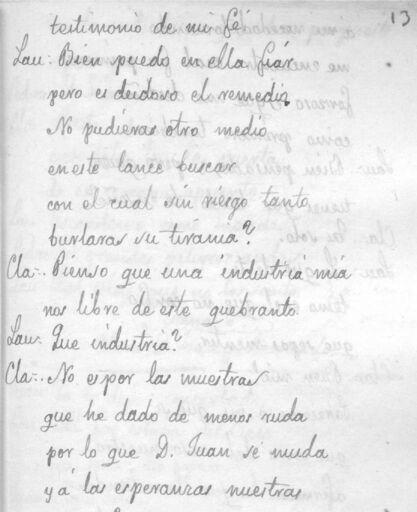 13
testimonio de mi fé
Lau: Bien puedo en ella fiár
pero es deudoso el remedio
No pudieras otro medio
en este lance buscar
con el cual sin riesgo tanto
burlaras su tirania?
Cla-. Pienso que una industria mia
nos libre de este quebranto
Lau-. Que industria?
Cla-. No es por las muestras
que he dado de menos ruda
por lo que D. Juan se muda
yá las esperanzas nuestras